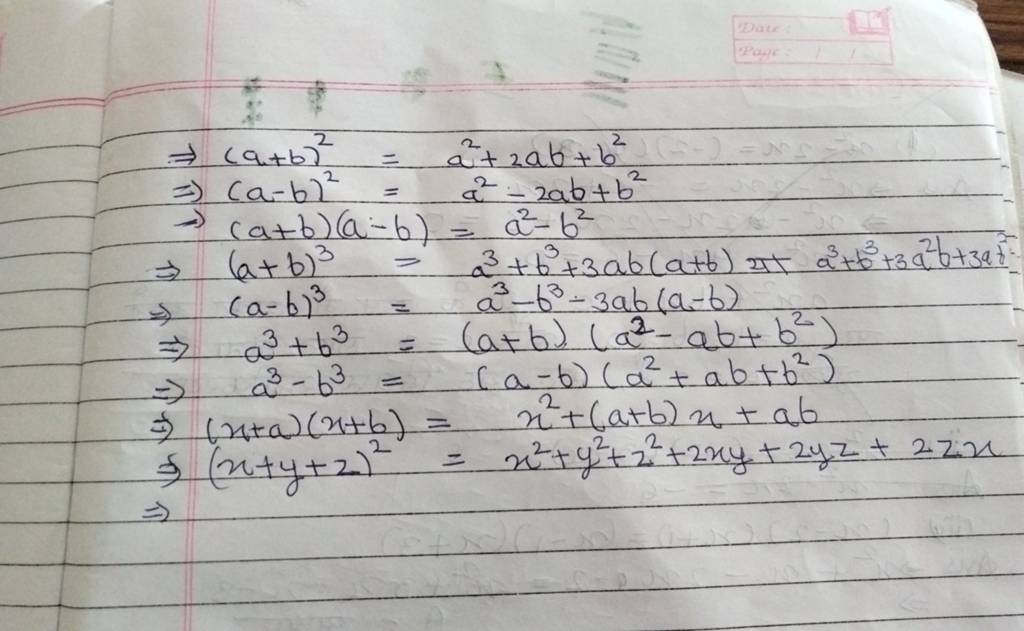 Date :
Page : / /
⇒ (a+b)² = a²+2ab+b²
⇒ (a-b)² = a²-2ab+b²
→ (a+b)(a-b) = a²-b²
⇒ (a+b)³ = a³+b³+3ab(a+b) या a³+b³+3a²b+3ab²
⇒ (a-b)³ = a³-b³-3ab(a-b)
⇒ a³+b³ = (a+b)(a²-ab+b²)
⇒ a³-b³ = (a-b)(a²+ab+b²)
⇒ (x+a)(x+b) = x²+(a+b)x+ab
⇒ (x+y+z)² = x²+y²+z²+2xy+2yz+2zx
⇒